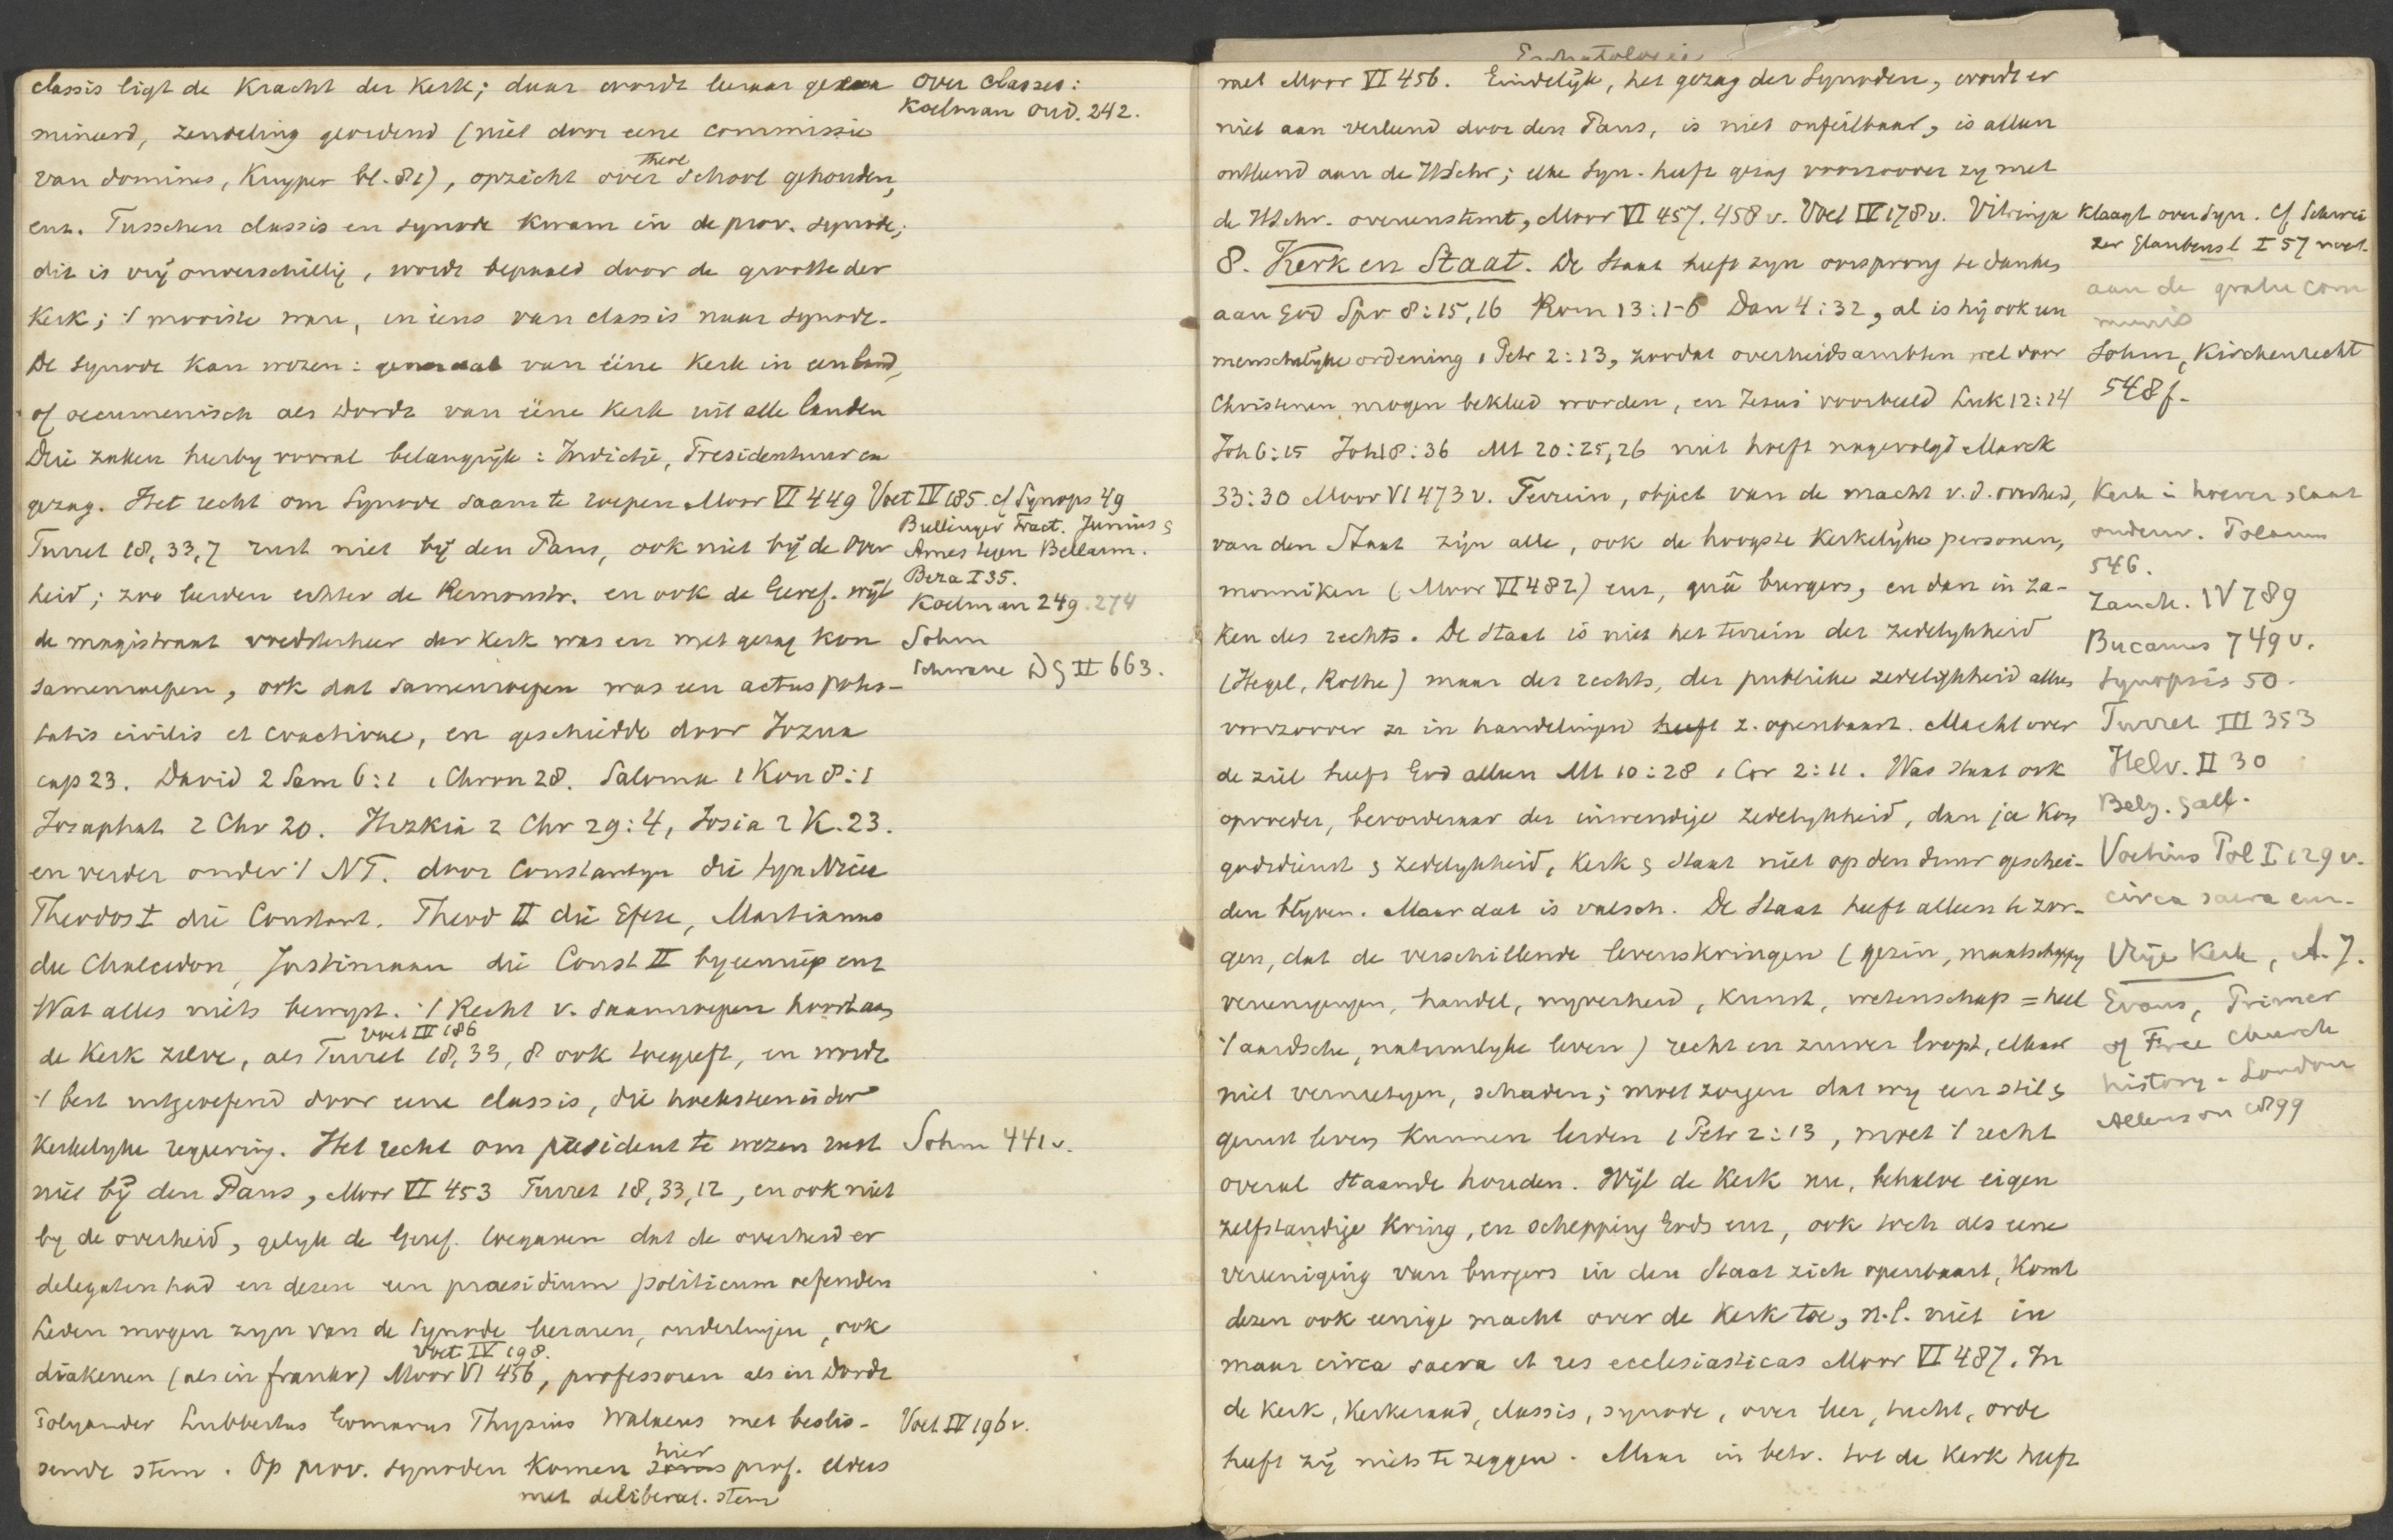 classis ligt de Kracht der Kerk; daar wordt leeraar geexa
mineerd, zendeling geordend (niet door eene commissie
van domines, Kuyper bl. 81), opzicht over Theol School gehouden,
enz. Tusschen classis en synode kwam in de prov. synode;
dit is vrij onverschillig, wordt bepaald door de grootte der
Kerk; 't mooiste ware, in eens van classis naar synode.
De synode kan wezen: generaal van ééne Kerk in een land,
of oecumenisch als Dordt van ééne Kerk uit alle landen
Drie zaken hierby vooral belangrijk: Indictie, Presidentuur en
gezag. Het recht om Synode saam te roepen Moor VI 449 Voet IV 185. cf Synops 49
Turret 18, 33, 7 rust niet bij den Paus, ook niet bij de Over
heid; zoo leerden echter de Remonstr. en ook de Geref. wijl
de magistraat voedsterheer der Kerk was en met gezag kon
samenroepen, ook dat samenroepen was een actus potes-
tatis civilis et coactivae, en geschiedde door Jozua
cap 23. David 2 Sam 6:1 1 Chron 28. Salomo 1 Kon 8:1
Josaphat 2 Chr 20. Hizkia 2 Chr 29:4, Josia 2 K. 23.
en verder onder 't NT. door Constantyn die syn Nicee
Theodos I die Constant. Theod II die Efeze, Martianus
die Chalcedon, Justiniaan die Const II byeenriep enz
Wat alles niets bewyst. 't Recht v. saamroepen hoort aan
de Kerk zelve, als Turret 18, 33, 8 Voet III 186 ook toegeeft, en wordt
't best uitgeoefend door eene classis, die hoeksteen is der
Kerkelyke regeering. Het recht om president te wezen rust
niet bij den Paus, Moor VI 453 Turret 18, 33, 12, en ook niet
by de overheid, gelyk de Geref. toegaven dat de overheid er
delegaten had en dezen een praesidium politicum oefenden
Leden mogen zyn van de Synode leeraren, ouderlingen, ook
diakenen (als in Frankr) Moor VI 456, Voet IV 198. professoren als in Dordt
Polyander Lubbertus Gomarus Thysius Walaeus met beslis-
sende stem. Op prov. synoden komen hier prof. elders
met deliberat. stem
over classes:
Koelman oud. 242.
Bullinger Tract. Junius &
Ames tegen Bellarm.
Beza I 35.
Koelman 249. 274
Sohm
Schwane DG II 663.
Sohm 441v.
Voet IV 196v.
Eschatologie
met Moor VI 456. Eindelijk, het gezag der Synoden, wordt er
niet aan verleend door den Paus, is niet onfeilbaar, is alleen
ontleend aan de HSchr; elke Syn. heeft gezag voorzoover zy met
de HSchr. overeenstemt, Moor VI 457. 458 v. Voet IV 178v. Vitringa klaagt over Syn. cf Schwei
zer Glaubensl I 57 noot.
8. Kerk en Staat. De Staat heeft zyn oorsprong te danken
aan God Spr 8:15, 16 Rom 13:1-6 Dan 4:32, al is hij ook een
menschelyke ordening 1 Petr 2:13, zoodat overheidsambten wel door
Christenen mogen bekleed worden, en Jezus' voorbeeld Luk 12:14
Joh 6:15 Joh 18:36 Mt 20:25,26 niet hoeft nagevolgd Marck
33:30 Moor VI 473v. Terrein, object van de macht v. d. overheid,
van den Staat zijn alle, ook de hoogste Kerkelyke personen,
monniken (Moor VI 482) enz, quâ burgers, en dan in za-
ken des rechts. De Staat is niet het terrein der zedelykheid
(Hegel, Rothe) maar des rechts, der publieke zedelijkheid alleen
voorzoover ze in handelingen heeft z. openbaart. Macht over
de ziel heeft God alleen Mt 10:28 1 Cor 2:11. Was Staat ook
opvoeder, bevorderaar der inwendige zedelykheid, dan ja kon
godsdienst & zedelykheid, Kerk & Staat niet op den duur geschei-
den blyven. Maar dat is valsch. De Staat heeft alleen te zor-
gen, dat de verschillende levenskringen (gezin, maatschappy
vereenigingen, handel, nyverheid, kunst, wetenschap = heel
't aardsche, natuurlyke leven) recht en zuiver loopt, elkaar
niet vernietigen, schaden; moet zorgen dat wy een stil &
gerust leven kunnen leiden 1 Petr 2:13, moet 't recht
overal staande houden. Wijl de Kerk nu, behalve eigen
zelfstandige kring, en schepping Gods enz, ook toch als eene
vereeniging van burgers in den Staat zich openbaart, komt
dezen ook eenige macht over de Kerk toe, n.l. niet in
maar circa sacra et res ecclesiasticas Moor VI 487. In
de Kerk, Kerkeraad, classis, synode, over leer, tucht, orde
heeft zij niets te zeggen. Maar in betr. tot de Kerk heeft
aan de gratie com
munis
Sohm, Kirchenrecht
548f.
Kerk in hoever Staat
onderw. Polanus
546.
Zanch. IV 789
Bucanus 749v.
Synopsis 50.
Turret III 353
Helv. II 30
Belg. Gall.
Voetius Pol I 129 v.
circa sacra enz.
Vrije Kerk, A. J.
Evans, Primer
of Free Church
history - London
Allenson 1899